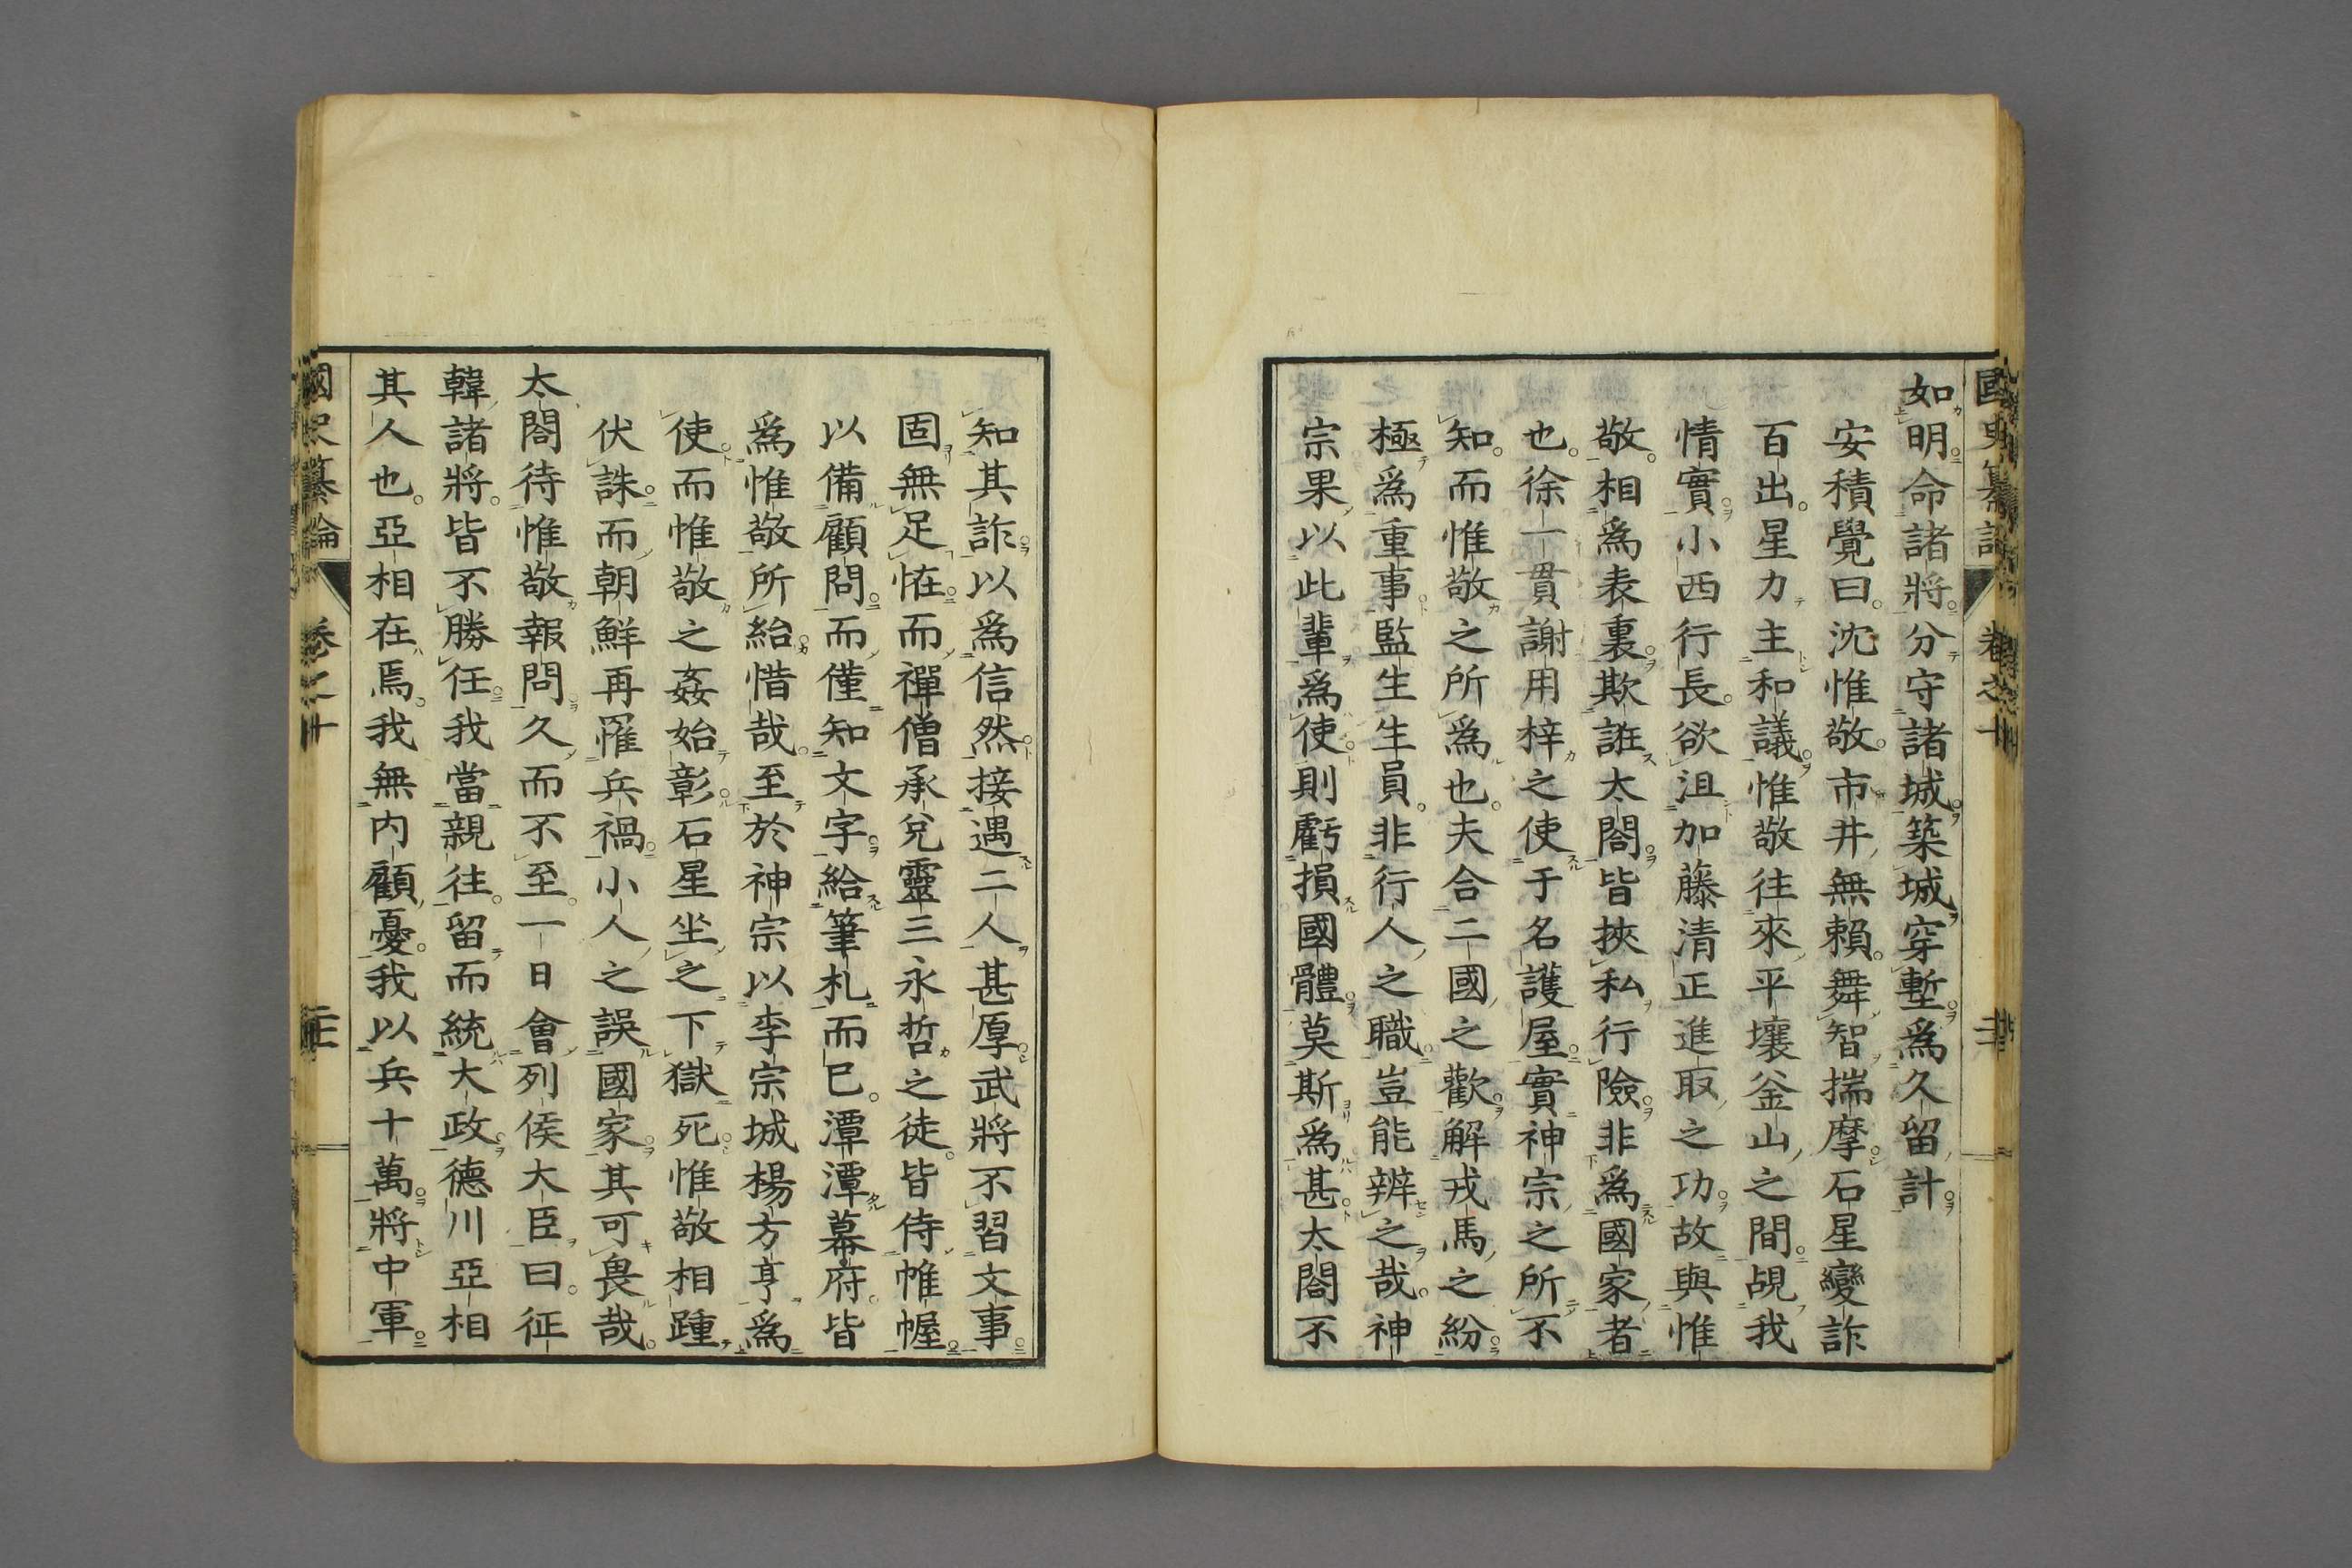 如明命諸將分守諸城築城穿塹爲久留計
安積覺曰沈惟敬市井無賴舞智揣摩石星變詐
百出星力主和議惟敬往來平壤釜山之間覘我
情實小西行長欲沮加藤清正進取之功故與惟
敬相爲表裏欺誑太閤皆挾私行險非爲國家者
也徐一貫謝用梓之使于名護屋實神宗之所不
知而惟敬之所爲也夫合二國之歡解戎馬之紛
極爲重事監生生員非行人之職豈能辨之哉神
宗果以此輩爲使則虧損國體莫斯爲甚太閤不
知其詐以爲信然接遇二人甚厚武將不習文事
固無足怪而禪僧承兌靈三永哲之徒皆侍帷幄
以備顧問而僅知文字給筆札而已潭潭幕府皆
爲惟敬所紿惜哉至於神宗以李宗城楊方亨爲
使而惟敬之姦始彰石星坐之下獄死惟敬相踵
伏誅而朝鮮再罹兵禍小人之誤國家其可畏哉
太閤待惟敬報問久而不至一日會列侯大臣曰征
韓諸將皆不勝任我當親往留而統大政德川亞相
其人也亞相在焉我無内顧憂我以兵十萬將中軍
國史纂論 卷之十